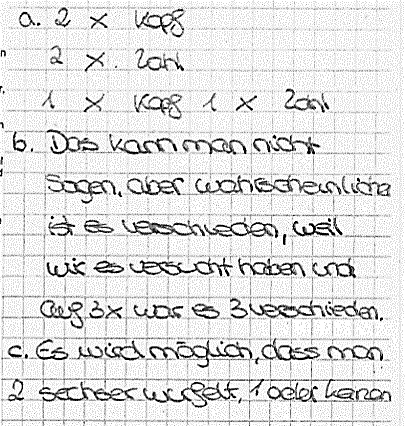 a. 2 x Kopf
2 x Zahl
1 x Kopf 1 x Zahl
b. Das kann man nicht
sagen, aber wahrscheinlicha
ist es verschieden, weil
wir es versucht haben und
auf 3x war es 3 verschieden.
c. Es wird möglich, dass man
2 sechser würfelt, 1 oder keinen